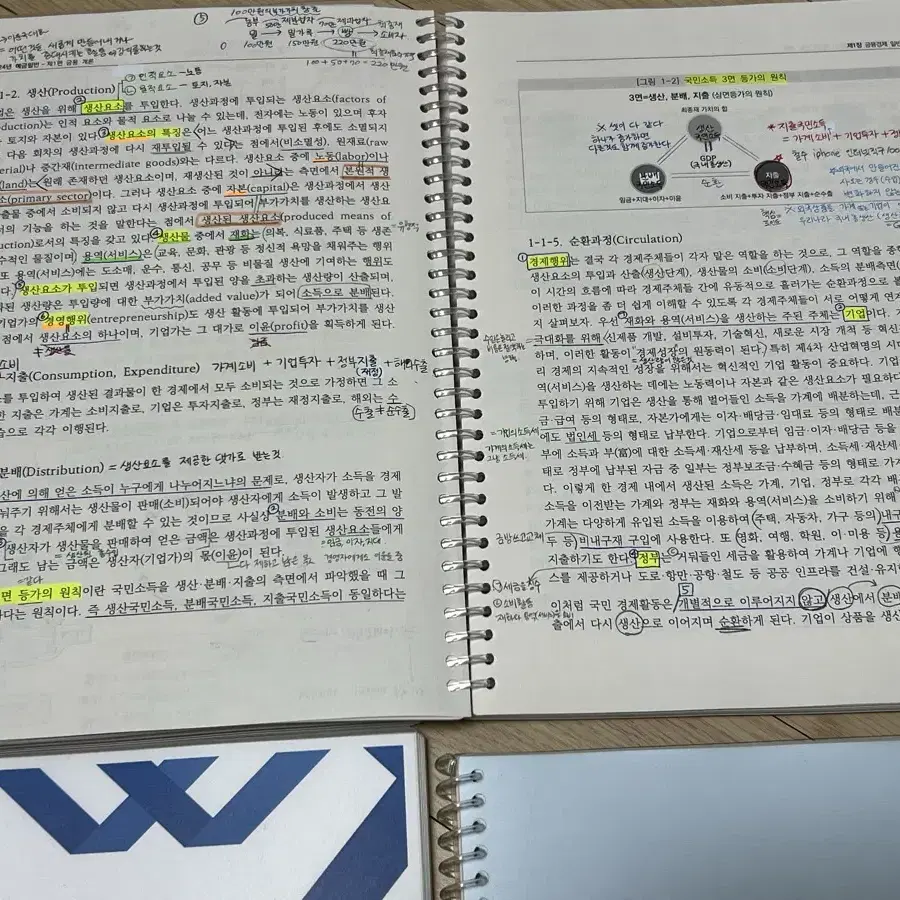 100만원
150만원
220만원
100+50+70=220만원
인적요소 - 노동
물적요소 - 토지, 자본
1-2. 생산(Production)
생산을 위해 생산요소를 투입한다. 생산과정에 투입되는 생산요소(factors of
oduction)는 인적 요소와 물적 요소로 나눌 수 있는데, 전자에는 노동이 있으며 후자
토지와 자본이 있다. 생산요소의 특징은 어느 생산과정에 투입된 후에도 소멸되지
다음 회차의 생산과정에 다시 재투입될 수 있다는 점에서(비소멸성), 원재료(raw
erial)나 중간재(intermediate goods)와는 다르다. 생산요소 중에 노동(labor)이나
(land)는 원래 존재하던 생산요소이며, 재생산된 것이 아니라는 측면에서 본원적 생
소(primary sector)이다. 그러나 생산요소 중에 자본(capital)은 생산과정에서 생산
출물 중에서 소비되지 않고 다시 생산과정에 투입되어 부가가치를 생산하는 생산요
서의 기능을 하는 것을 말한다는 점에서 생산된 생산요소(produced means of
uction)로서의 특징을 갖고 있다. 생산물 중에서 재화는 (의복, 식료품, 주택 등 생존
수적인 물질이며) 용역(서비스)은 (교육, 문화, 관광 등 정신적 욕망을 채워주는 행위
또 용역(서비스)에는 도소매, 운수, 통신, 공무 등 비물질 생산에 기여하는 행위도
다. 생산요소가 투입되면 생산과정에서 투입된 양을 초과하는 생산량이 산출되며,
과된 생산량은 투입량에 대한 부가가치(added value)가 되어 소득으로 분배된다.
기업가의 경영행위(entrepreneurship)도 생산 활동에 투입되어 부가가치를 생산
점에서 생산요소의 하나이며, 기업가는 그 대가로 이윤(profit)을 획득하게 된다.
소비
지출(Consumption, Expenditure) 가계소비 + 기업투자 + 정부지출 + 해외수출
(재정)
를 투입하여 생산된 결과물이 한 경제에서 모두 소비되는 것으로 가정하면 그 소
한 지출은 가계는 소비지출로, 기업은 투자지출로, 정부는 재정지출로, 해외는 수
습으로 각각 이행된다.
분배(Distribution) = 생산요소를 제공한 댓가로 받는것
산에 의해 얻은 소득이 누구에게 나누어지느냐의 문제로, 생산자가 소득을 경제
눠주기 위해서는 생산물이 판매(소비)되어야 생산자에게 소득이 발생하고 그 발
을 각 경제주체에게 분배할 수 있는 것이므로 사실상 분배와 소비는 동전의 양
생산자가 생산물을 판매하여 얻은 금액은 생산과정에 투입된 생산요소들에게
그래도 남는 금액은 생산자(기업가)의 몫(이윤)이 된다.
면 등가의 원칙이란 국민소득을 생산·분배·지출의 측면에서 파악했을 때 그
다는 원칙이다. 즉 생산국민소득, 분배국민소득, 지출국민소득이 동일하다는
제1장 금융경제 일반
[그림 1-2] 국민소득 3면 등가의 원칙
3면=생산, 분배, 지출 (삼면등가의 원칙)
최종재 가치의 합
생산
국민소득
GDP
(국내총생산)
분배
국민소득
순환
지출
국민소득
임금+지대+이자+이윤
소비 지출+투자 지출+정부 지출+순수출
※ 셋이 다 같다
* 지출국민소득
= 가계소비 + 기업투자 + 정
1-1-5. 순환과정(Circulation)
경제행위는 결국 각 경제주체들이 각자 맡은 역할을 하는 것으로, 그 역할을 종합
생산요소의 투입과 산출(생산단계), 생산물의 소비(소비단계), 소득의 분배측면(
이 시간의 흐름에 따라 경제주체들 간에 유동적으로 흘러가는 순환과정으로 볼
이러한 과정을 좀 더 쉽게 이해할 수 있도록 각 경제주체들이 서로 어떻게 연계
지 살펴보자. 우선 재화와 용역(서비스)을 생산하는 주된 주체는 기업이다.
극대화를 위해 (신제품 개발, 설비투자, 기술혁신, 새로운 시장 개척 등 혁신
하며, 이러한 활동이 경제성장의 원동력이 된다.) 특히 제4차 산업혁명의 시대
리 경제의 지속적인 성장을 위해서는 혁신적인 기업 활동이 중요하다. 기업
역(서비스)을 생산하는 데에는 노동력이나 자본과 같은 생산요소가 필요하다
투입하기 위해 기업은 생산을 통해 벌어들인 소득을 가계에 배분하는데, 근
금·급여 등의 형태로, 자본가에게는 이자·배당금·임대료 등의 형태로 배분
에도 법인세 등의 형태로 납부한다. 기업으로부터 임금·이자·배당금 등을
부에 소득과 부(富)에 대한 소득세·재산세 등을 납부하며, 소득세·재산세
태로 정부에 납부된 자금 중 일부는 정부보조금·수혜금 등의 형태로 가계
다. 이렇게 한 경제 내에서 생산된 소득은 가계, 기업, 정부로 각각 배
소득을 이전받는 가계와 정부는 재화와 용역(서비스)을 소비하기 위해
가계는 다양하게 유입된 소득을 이용하여 (주택, 자동차, 가구 등의) 내구
두 등) 비내구재 구입에 사용한다. 또 (영화, 여행, 학원, 이·미용 등) 용
지출하기도 한다. 정부는 거둬들인 세금을 활용하여 가계나 기업에 행
스를 제공하거나 도로·항만·공항·철도 등 공공 인프라를 건설·유지
이처럼 국민 경제활동은 개별적으로 이루어지지 않고 생산에서 분배
출에서 다시 생산으로 이어지며 순환하게 된다. 기업이 상품을 생산